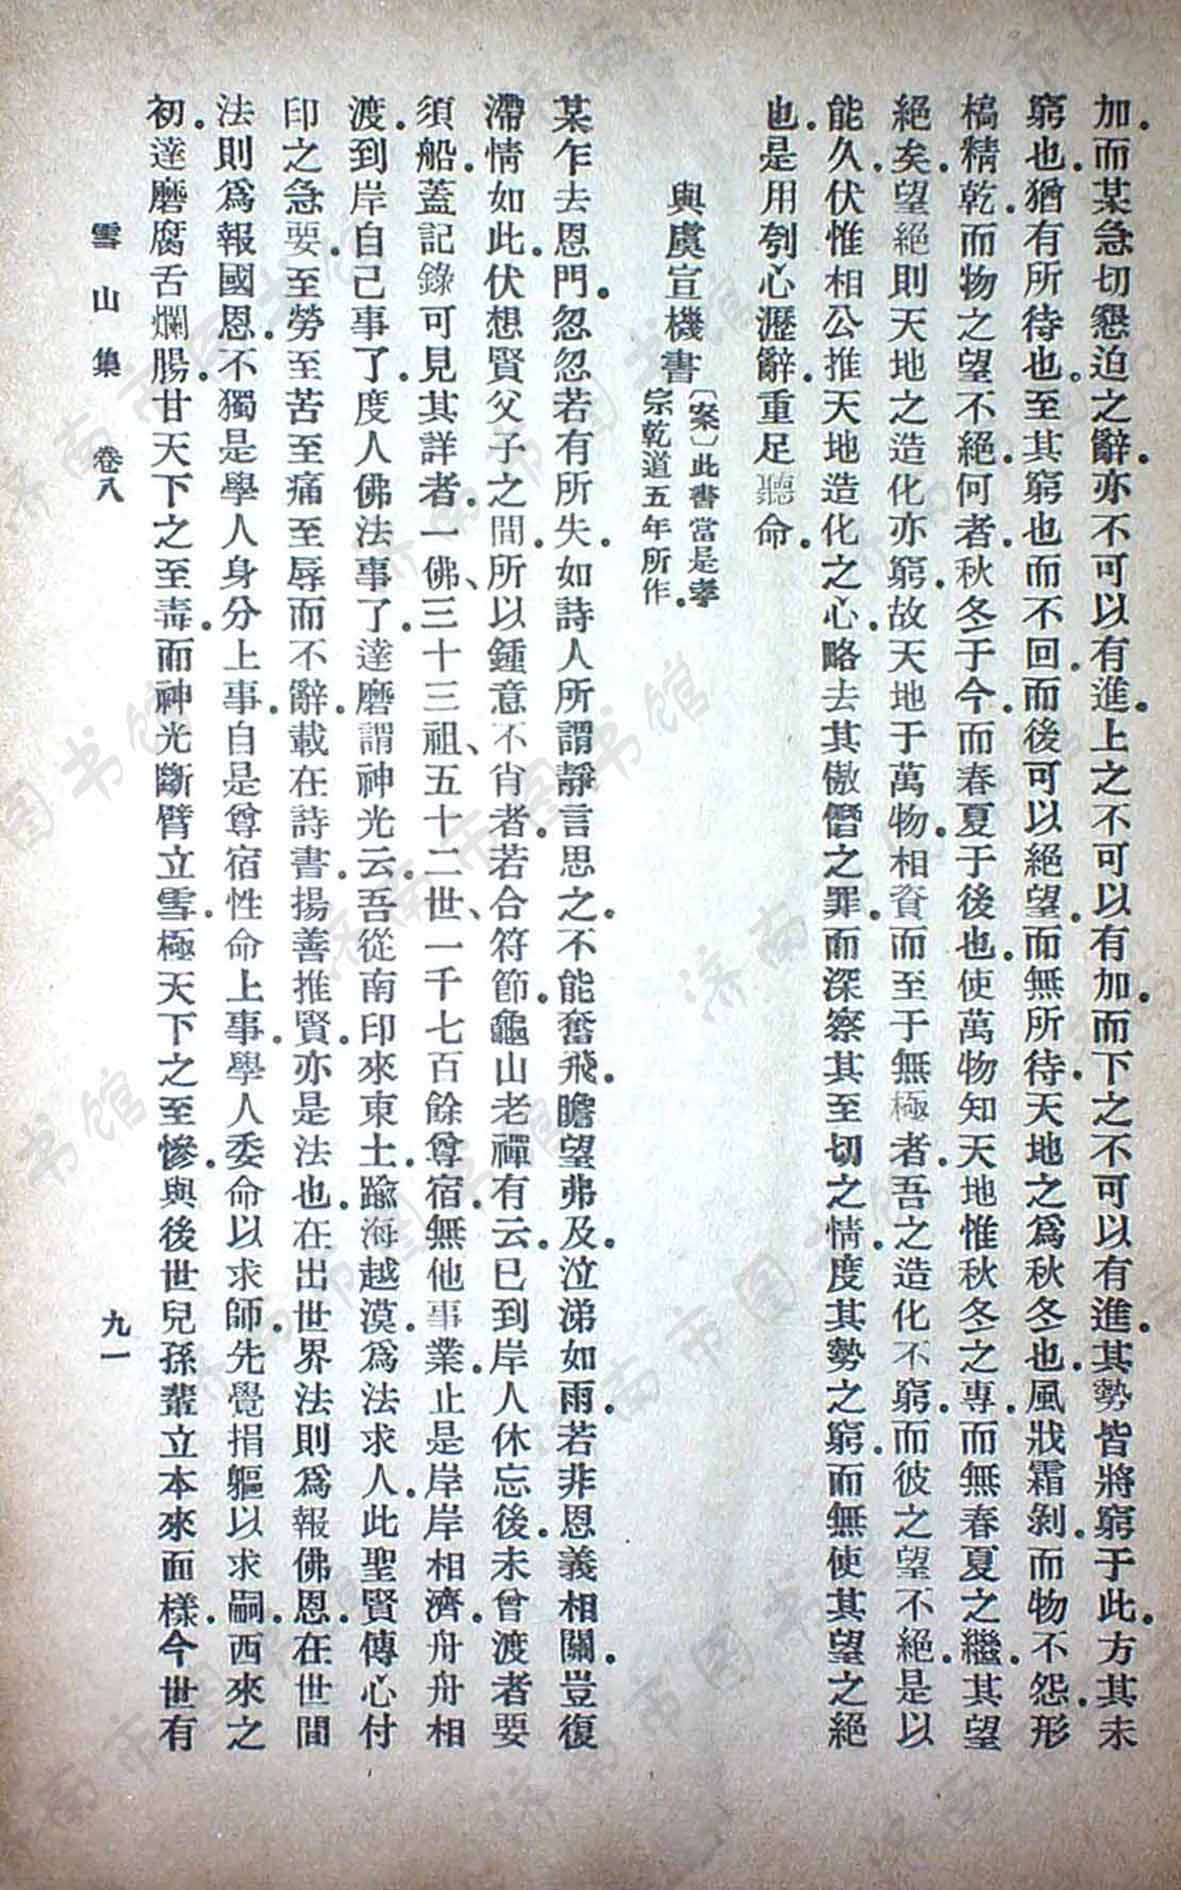 加。而某急切懇迫之辭。亦不可以有進。上之不可以有加。而下之不可以有進。其勢皆將窮于此。方其未
窮也。猶有所待也。至其窮也而不回。而後可以絕望。而無所待。天地之爲秋冬也。風戕霜剝。而物不怨。形
槁精乾。而物之望不絕。何者。秋冬于今。而春夏于後也。使萬物知天地惟秋冬之專。而無春夏之繼。其望
絕矣。望絕則天地之造化亦窮。故天地于萬物。相資而至于無極者。吾之造化不窮。而彼之望不絕。是以
能久。伏惟相公推天地造化之心。略去其傲僭之罪。而深察其至切之情。度其勢之窮。而無使其望之絕
也。是用刳心瀝辭。重足聽命。
與虞宣機書
〔案〕此書當是孝
宗乾道五年所作。
某乍去恩門。忽忽若有所失。如詩人所謂靜言思之。不能奮飛。瞻望弗及。泣涕如雨。若非恩義相關。豈復
滯情如此。伏想賢父子之間。所以鍾意不肖者。若合符節。龜山老禪有云。已到岸人休忘後。未曾渡者要
須船。蓋記錄可見其詳者。一佛、三十三祖、五十二世、一千七百餘尊宿。無他事業。止是岸岸相濟。舟舟相
渡。到岸自己事了。度人佛法事了。達磨謂神光云。吾從南印來東土。踰海越漠。爲法求人。此聖賢傳心付
印之急要。至勞至苦至痛至辱而不辭。載在詩書。揚善推賢。亦是法也。在出世界法則爲報佛恩。在世間
法則爲報國恩。不獨是學人身分上事。自是尊宿性命上事。學人委命以求師。先覺捐軀以求嗣。西來之
初。達磨腐舌爛腸。甘天下之至毒。而神光斷臂立雪。極天下之至慘。與後世兒孫輩立本來面樣。今世有
雪山集 卷八
九一